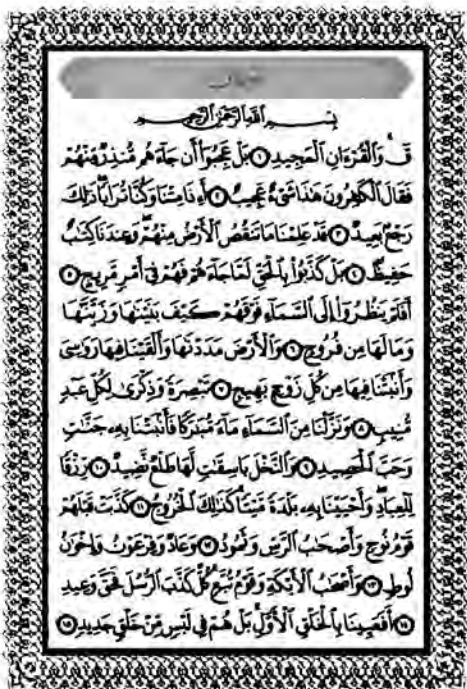 بِسْمِ ٱللَّهِ ٱلرَّحْمَٰنِ ٱلرَّحِيمِ
قٓ وَٱلْقُرْءَانِ ٱلْمَجِيدِ ١ بَلْ عَجِبُوٓا۟ أَن جَآءَهُم مُّنذِرٌ مِّنْهُمْ
فَقَالَ ٱلْكَٰفِرُونَ هَٰذَا شَىْءٌ عَجِيبٌ ٢ أَءِذَا مِتْنَا وَكُنَّا تُرَابًا ذَٰلِكَ
رَجْعٌۢ بَعِيدٌ ٣ قَدْ عَلِمْنَا مَا تَنقُصُ ٱلْأَرْضُ مِنْهُمْ وَعِندَنَا كِتَٰبٌ
حَفِيظٌۢ ٤ بَلْ كَذَّبُوا۟ بِٱلْحَقِّ لَمَّا جَآءَهُمْ فَهُمْ فِىٓ أَمْرٍ مَّرِيجٍ ٥
أَفَلَمْ يَنظُرُوٓا۟ إِلَى ٱلسَّمَآءِ فَوْقَهُمْ كَيْفَ بَنَيْنَٰهَا وَزَيَّنَّٰهَا
وَمَا لَهَا مِن فُرُوجٍ ٦ وَٱلْأَرْضَ مَدَدْنَٰهَا وَأَلْقَيْنَا فِيهَا رَوَٰسِىَ
وَأَنۢبَتْنَا فِيهَا مِن كُلِّ زَوْجٍۭ بَهِيجٍ ٧ تَبْصِرَةً وَذِكْرَىٰ لِكُلِّ عَبْدٍ
مُّنِيبٍ ٨ وَنَزَّلْنَا مِنَ ٱلسَّمَآءِ مَآءً مُّبَٰرَكًا فَأَنۢبَتْنَا بِهِۦ جَنَّٰتٍ
وَحَبَّ ٱلْحَصِيدِ ٩ وَٱلنَّخْلَ بَاسِقَٰتٍ لَّهَا طَلْعٌ نَّضِيدٌ ١٠ رِّزْقًا
لِّلْعِبَادِ وَأَحْيَيْنَا بِهِۦ بَلْدَةً مَّيْتًا كَذَٰلِكَ ٱلْخُرُوجُ ١١ كَذَّبَتْ قَبْلَهُمْ
قَوْمُ نُوحٍ وَأَصْحَٰبُ ٱلرَّسِّ وَثَمُودُ ١٢ وَعَادٌ وَفِرْعَوْنُ وَإِخْوَٰنُ
لُوطٍ ١٣ وَأَصْحَٰبُ ٱلْأَيْكَةِ وَقَوْمُ تُبَّعٍ كُلٌّ كَذَّبَ ٱلرُّسُلَ فَحَقَّ وَعِيدِ
١٤ أَفَعَيِينَا بِٱلْخَلْقِ ٱلْأَوَّلِ بَلْ هُمْ فِى لَبْسٍ مِّنْ خَلْقٍ جَدِيدٍ ١٥